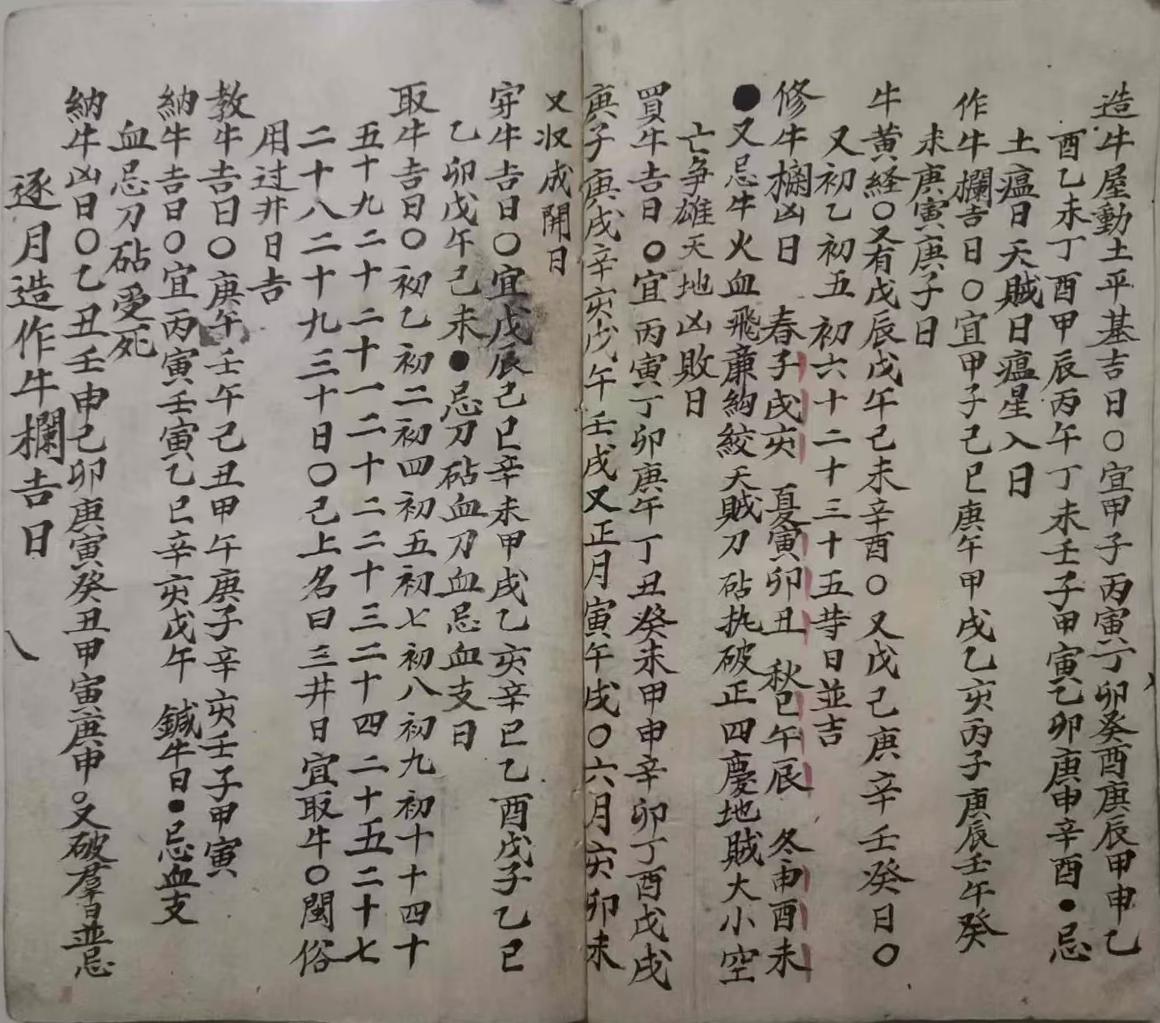 造牛屋動土平基吉日〇宜甲子丙寅丁卯癸酉庚辰甲申乙
酉乙未丁酉甲辰丙午丁未壬子甲寅乙卯庚申辛酉●忌
土瘟日天賊日瘟星入日
作牛欄吉日〇宜甲子己巳庚午甲戌乙亥丙子庚辰壬午癸
未庚寅庚子日
牛黄経〇又有戊辰戊午己未辛酉〇又戊己庚辛壬癸日〇
又初乙初五初六十二十三十五等日並吉
修牛欄凶日 春子戌亥 夏寅卯丑 秋巳午辰 冬申酉未
●又忌牛火血飛亷絇絞天賊刀砧执破正四慶地賊大小空
亡争雄天地凶敗日
買牛吉日〇宜丙寅丁卯庚午丁丑癸未甲申辛卯丁酉戊戌
庚子庚戌辛亥戊午壬戌又正月寅午戌〇六月亥卯未
又収成開日
穿牛吉日〇宜戊辰己巳辛未甲戌乙亥辛巳乙酉戊子乙巳
乙卯戊午己未●忌刀砧血刀血忌血支日
取牛吉日〇初乙初二初四初五初七初八初九初十十四十
五十九二十二十一二十二二十三二十四二十五二十七
二十八二十九三十日〇己上名曰三井日宜取牛〇閩俗
用过井日吉
教牛吉日〇庚午壬午己丑甲午庚子辛亥壬子甲寅
納牛吉日〇宜丙寅壬寅乙巳辛亥戊午 鍼牛日●忌血支
血忌刀砧受死
納牛凶日〇乙丑壬申己卯庚寅癸丑甲寅庚申。又破羣日並忌
逐月造作牛欄吉日